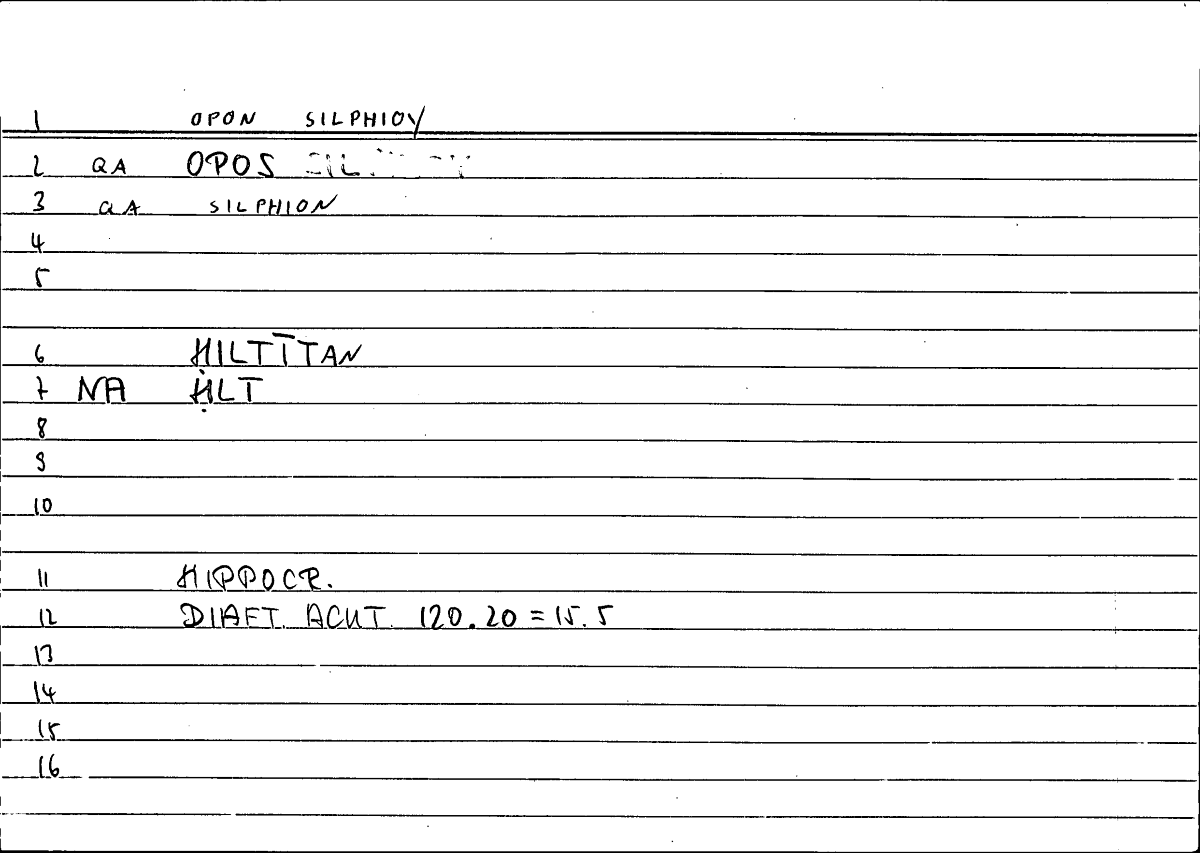 1 OPON SILPHIOY
2 QA OPOS
3 QA SILPHION
4
5
6 ḤILTĪTAN
7 NA ḤLT
8
9
10
11 HIPPOCR.
12 DIAET. ACUT. 120.20 = 15.5
13
14
15
16